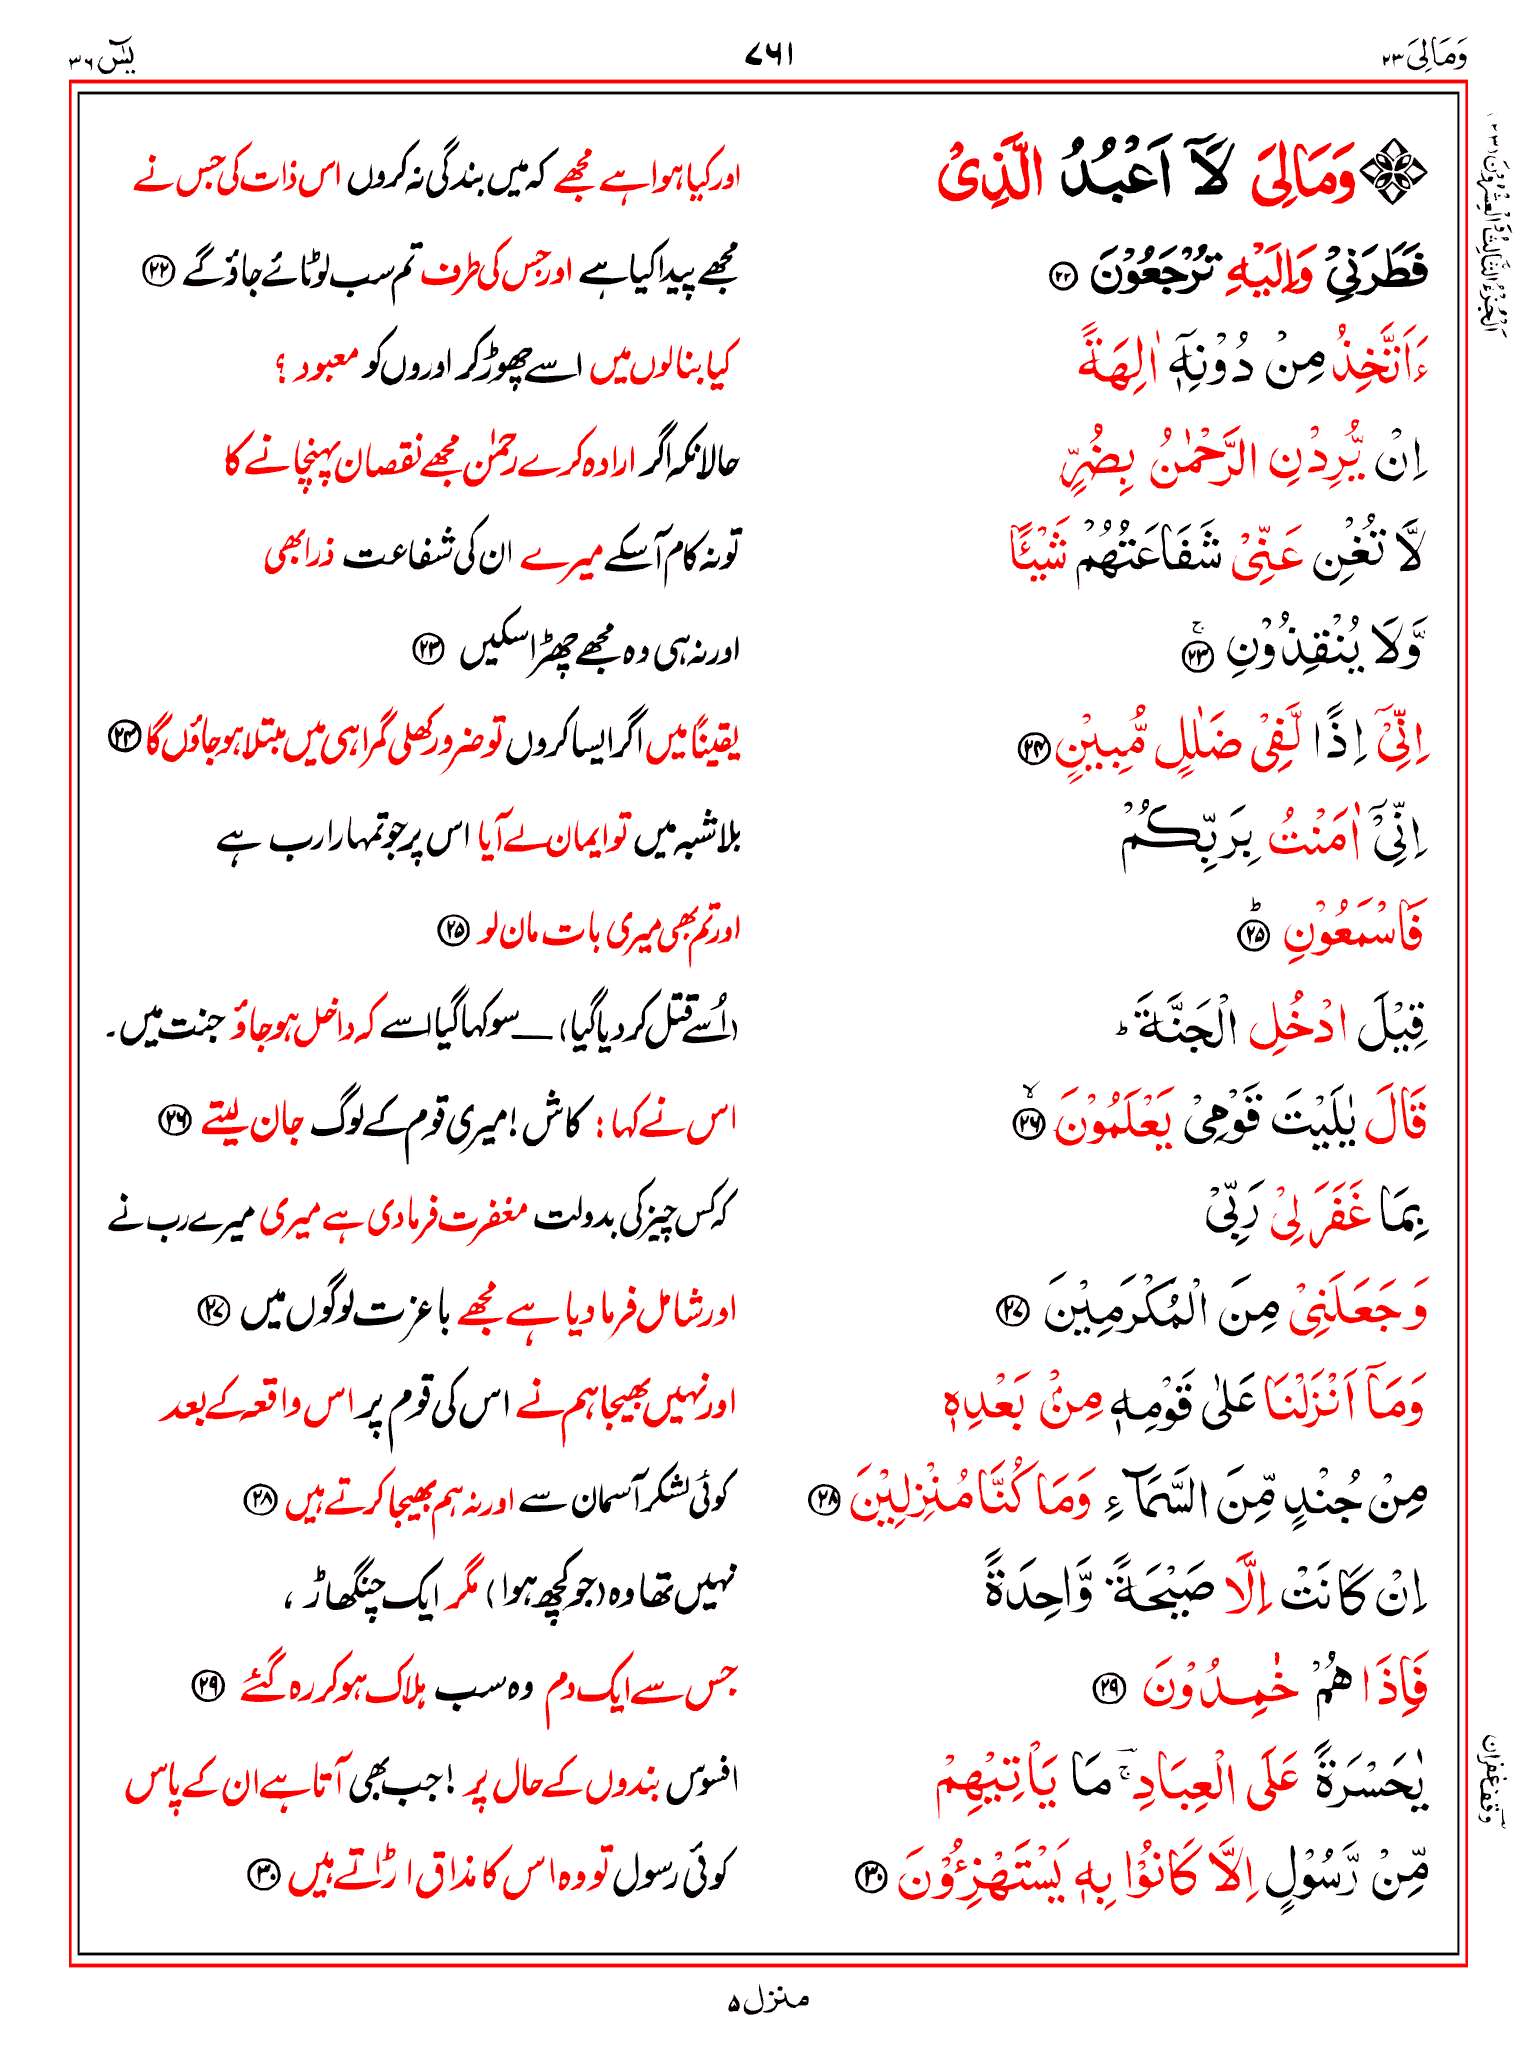 وَمَالِیَ ۲۳ ۷۶۱ یٰسٓ ۳۶
وَمَالِیَ لَاۤ اَعْبُدُ الَّذِیْ اور کیا ہوا ہے مجھے کہ میں بندگی نہ کروں اس ذات کی جس نے
فَطَرَنِیْ وَاِلَیْهِ تُرْجَعُوْنَ ۲۲ مجھے پیدا کیا ہے اور جس کی طرف تم سب لوٹائے جاؤ گے ۲۲
ءَاَتَّخِذُ مِنْ دُوْنِهٖۤ اٰلِهَةً کیا بنالوں میں اسے چھوڑ کر اوروں کو معبود ؟
اِنْ یُّرِدْنِ الرَّحْمٰنُ بِضُرٍّ حالانکہ اگر ارادہ کرے رحمٰن مجھے نقصان پہنچانے کا
لَّا تُغْنِ عَنِّیْ شَفَاعَتُهُمْ شَیْـًٔا تو نہ کام آسکے میرے ان کی شفاعت ذرا بھی
وَّلَا یُنْقِذُوْنِ ۚ ۲۳ اور نہ ہی وہ مجھے چھڑا سکیں ۲۳
اِنِّیْۤ اِذًا لَّفِیْ ضَلٰلٍ مُّبِیْنٍ ۲۴ یقیناً میں اگر ایسا کروں تو ضرور کھلی گمراہی میں مبتلا ہو جاؤں گا ۲۴
اِنِّیْۤ اٰمَنْتُ بِرَبِّكُمْ بلاشبہ میں تو ایمان لے آیا اس پر جو تمہارا رب ہے
فَاسْمَعُوْنِ ؕ ۲۵ اور تم بھی میری بات مان لو ۲۵
قِیْلَ ادْخُلِ الْجَنَّةَ ؕ (اُسے قتل کر دیا گیا) — سو کہا گیا اسے کہ داخل ہو جاؤ جنت میں۔
قَالَ یٰلَیْتَ قَوْمِیْ یَعْلَمُوْنَ ۙ ۲۶ اس نے کہا: کاش! میری قوم کے لوگ جان لیتے ۲۶
بِمَا غَفَرَ لِیْ رَبِّیْ کہ کس چیز کی بدولت مغفرت فرمادی ہے میری میرے رب نے
وَجَعَلَنِیْ مِنَ الْمُكْرَمِیْنَ ۲۷ اور شامل فرما دیا ہے مجھے باعزت لوگوں میں ۲۷
وَمَاۤ اَنْزَلْنَا عَلٰی قَوْمِهٖ مِنْۢ بَعْدِهٖ اور نہیں بھیجا ہم نے اس کی قوم پر اس واقعہ کے بعد
مِنْ جُنْدٍ مِّنَ السَّمَآءِ وَمَا كُنَّا مُنْزِلِیْنَ ۲۸ کوئی لشکر آسمان سے اور نہ ہم بھیجا کرتے ہیں ۲۸
اِنْ كَانَتْ اِلَّا صَیْحَةً وَّاحِدَةً نہیں تھا وہ (جو کچھ ہوا) مگر ایک چنگھاڑ ،
فَاِذَا هُمْ خٰمِدُوْنَ ۲۹ جس سے ایک دم وہ سب ہلاک ہو کر رہ گئے ۲۹
یٰحَسْرَةً عَلَی الْعِبَادِ ۚ مَا یَاْتِیْهِمْ افسوس بندوں کے حال پر ! جب بھی آتا ہے ان کے پاس
مِّنْ رَّسُوْلٍ اِلَّا كَانُوْا بِهٖ یَسْتَهْزِءُوْنَ ۳۰ کوئی رسول تو وہ اس کا مذاق اڑاتے ہیں ۳۰
اَلْجُزْءُ الثَّالِثُ وَالْعِشْرُوْنَ (۲۳)
وقف غفران
منزل ۵